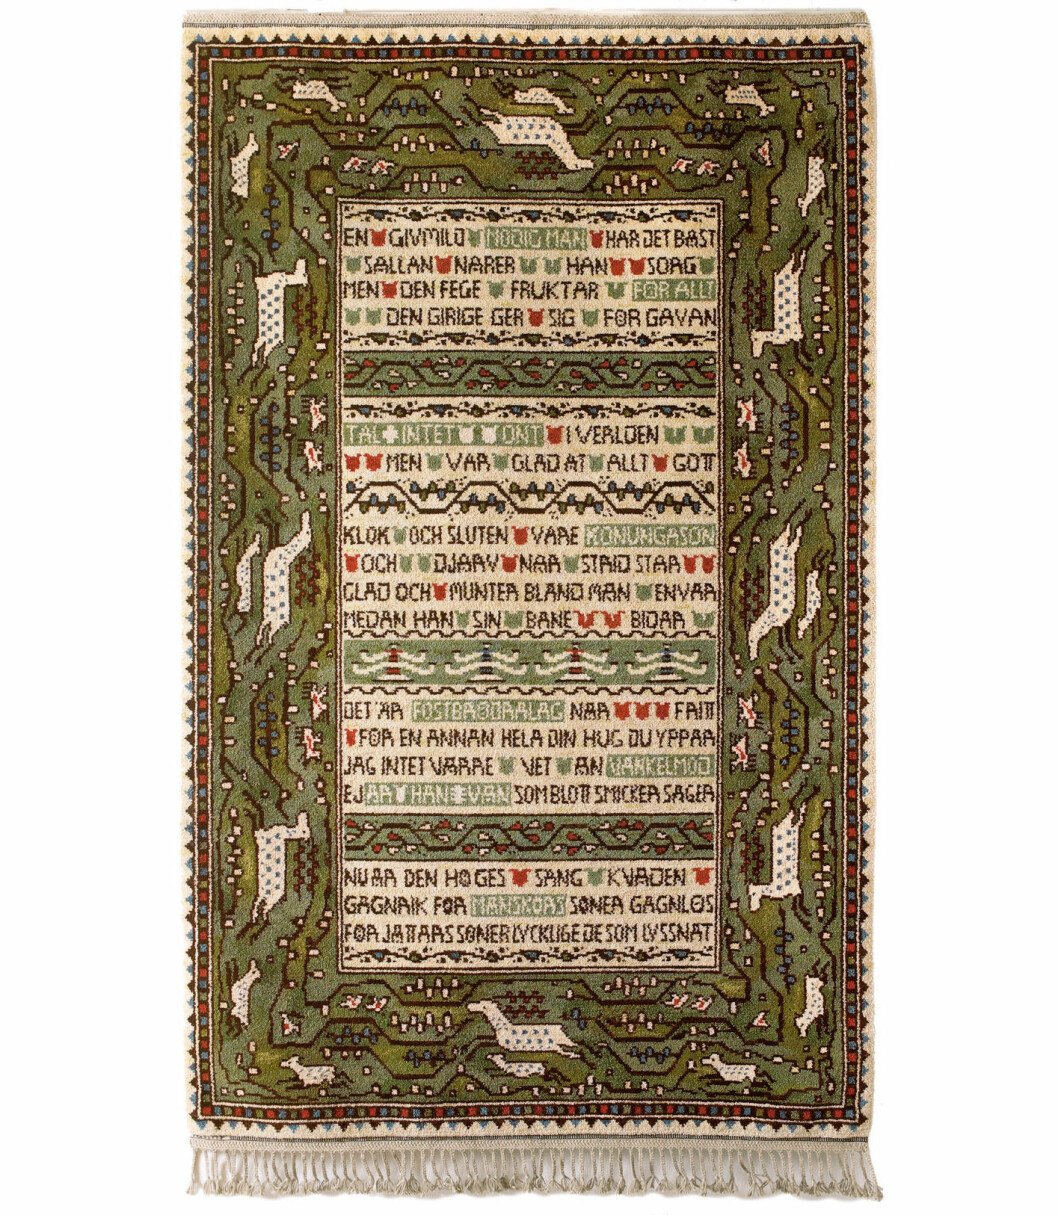 EN GIVMILD MODIG MAN HAR DET BÄST
SÄLLAN NÄRER HAN SORG
MEN DEN FEGE FRUKTAR FÖR ALLT
DEN GIRIGE GER SIG FÖR GÅVAN
TAL INTET ONT I VERLDEN
MEN VAR GLAD ÅT ALLT GOTT
KLOK OCH SLUTEN VARE KONUNGASON
OCH DJÄRV NÄR STRID STÅR
GLAD OCH MUNTER BLAND MÄN ENVAR
MEDAN HAN SIN BANE BIDAR
DET ÄR FOSTBRÖDRALAG NÄR FRITT
FÖR EN ANNAN HELA DIN HUG DU YPPAR
JAG INTET VÄRRE VET ÄN VANKELMOD
EJ ÄR HAN VÄN SOM BLOTT SMICKER SÄGER
NU ÄR DEN HÖGES SÅNG KVÄDEN
GAGNRIK FÖR MÄNSKORS SÖNER GAGNLÖS
FÖR JÄTTARS SÖNER LYCKLIGE DE SOM LYSSNAT